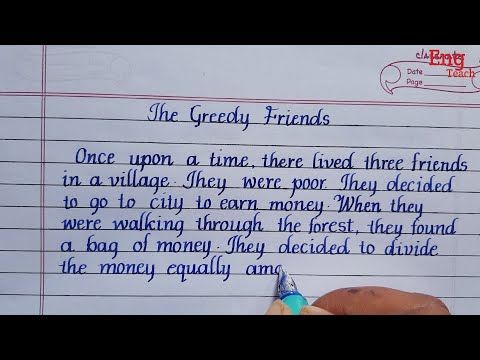 Eng
Teach
Date
Page
The Greedy Friends
Once upon a time, there lived three friends
in a village. They were poor. They decided
to go to city to earn money. When they
were walking through the forest, they found
a bag of money. They decided to divide
the money equally amo